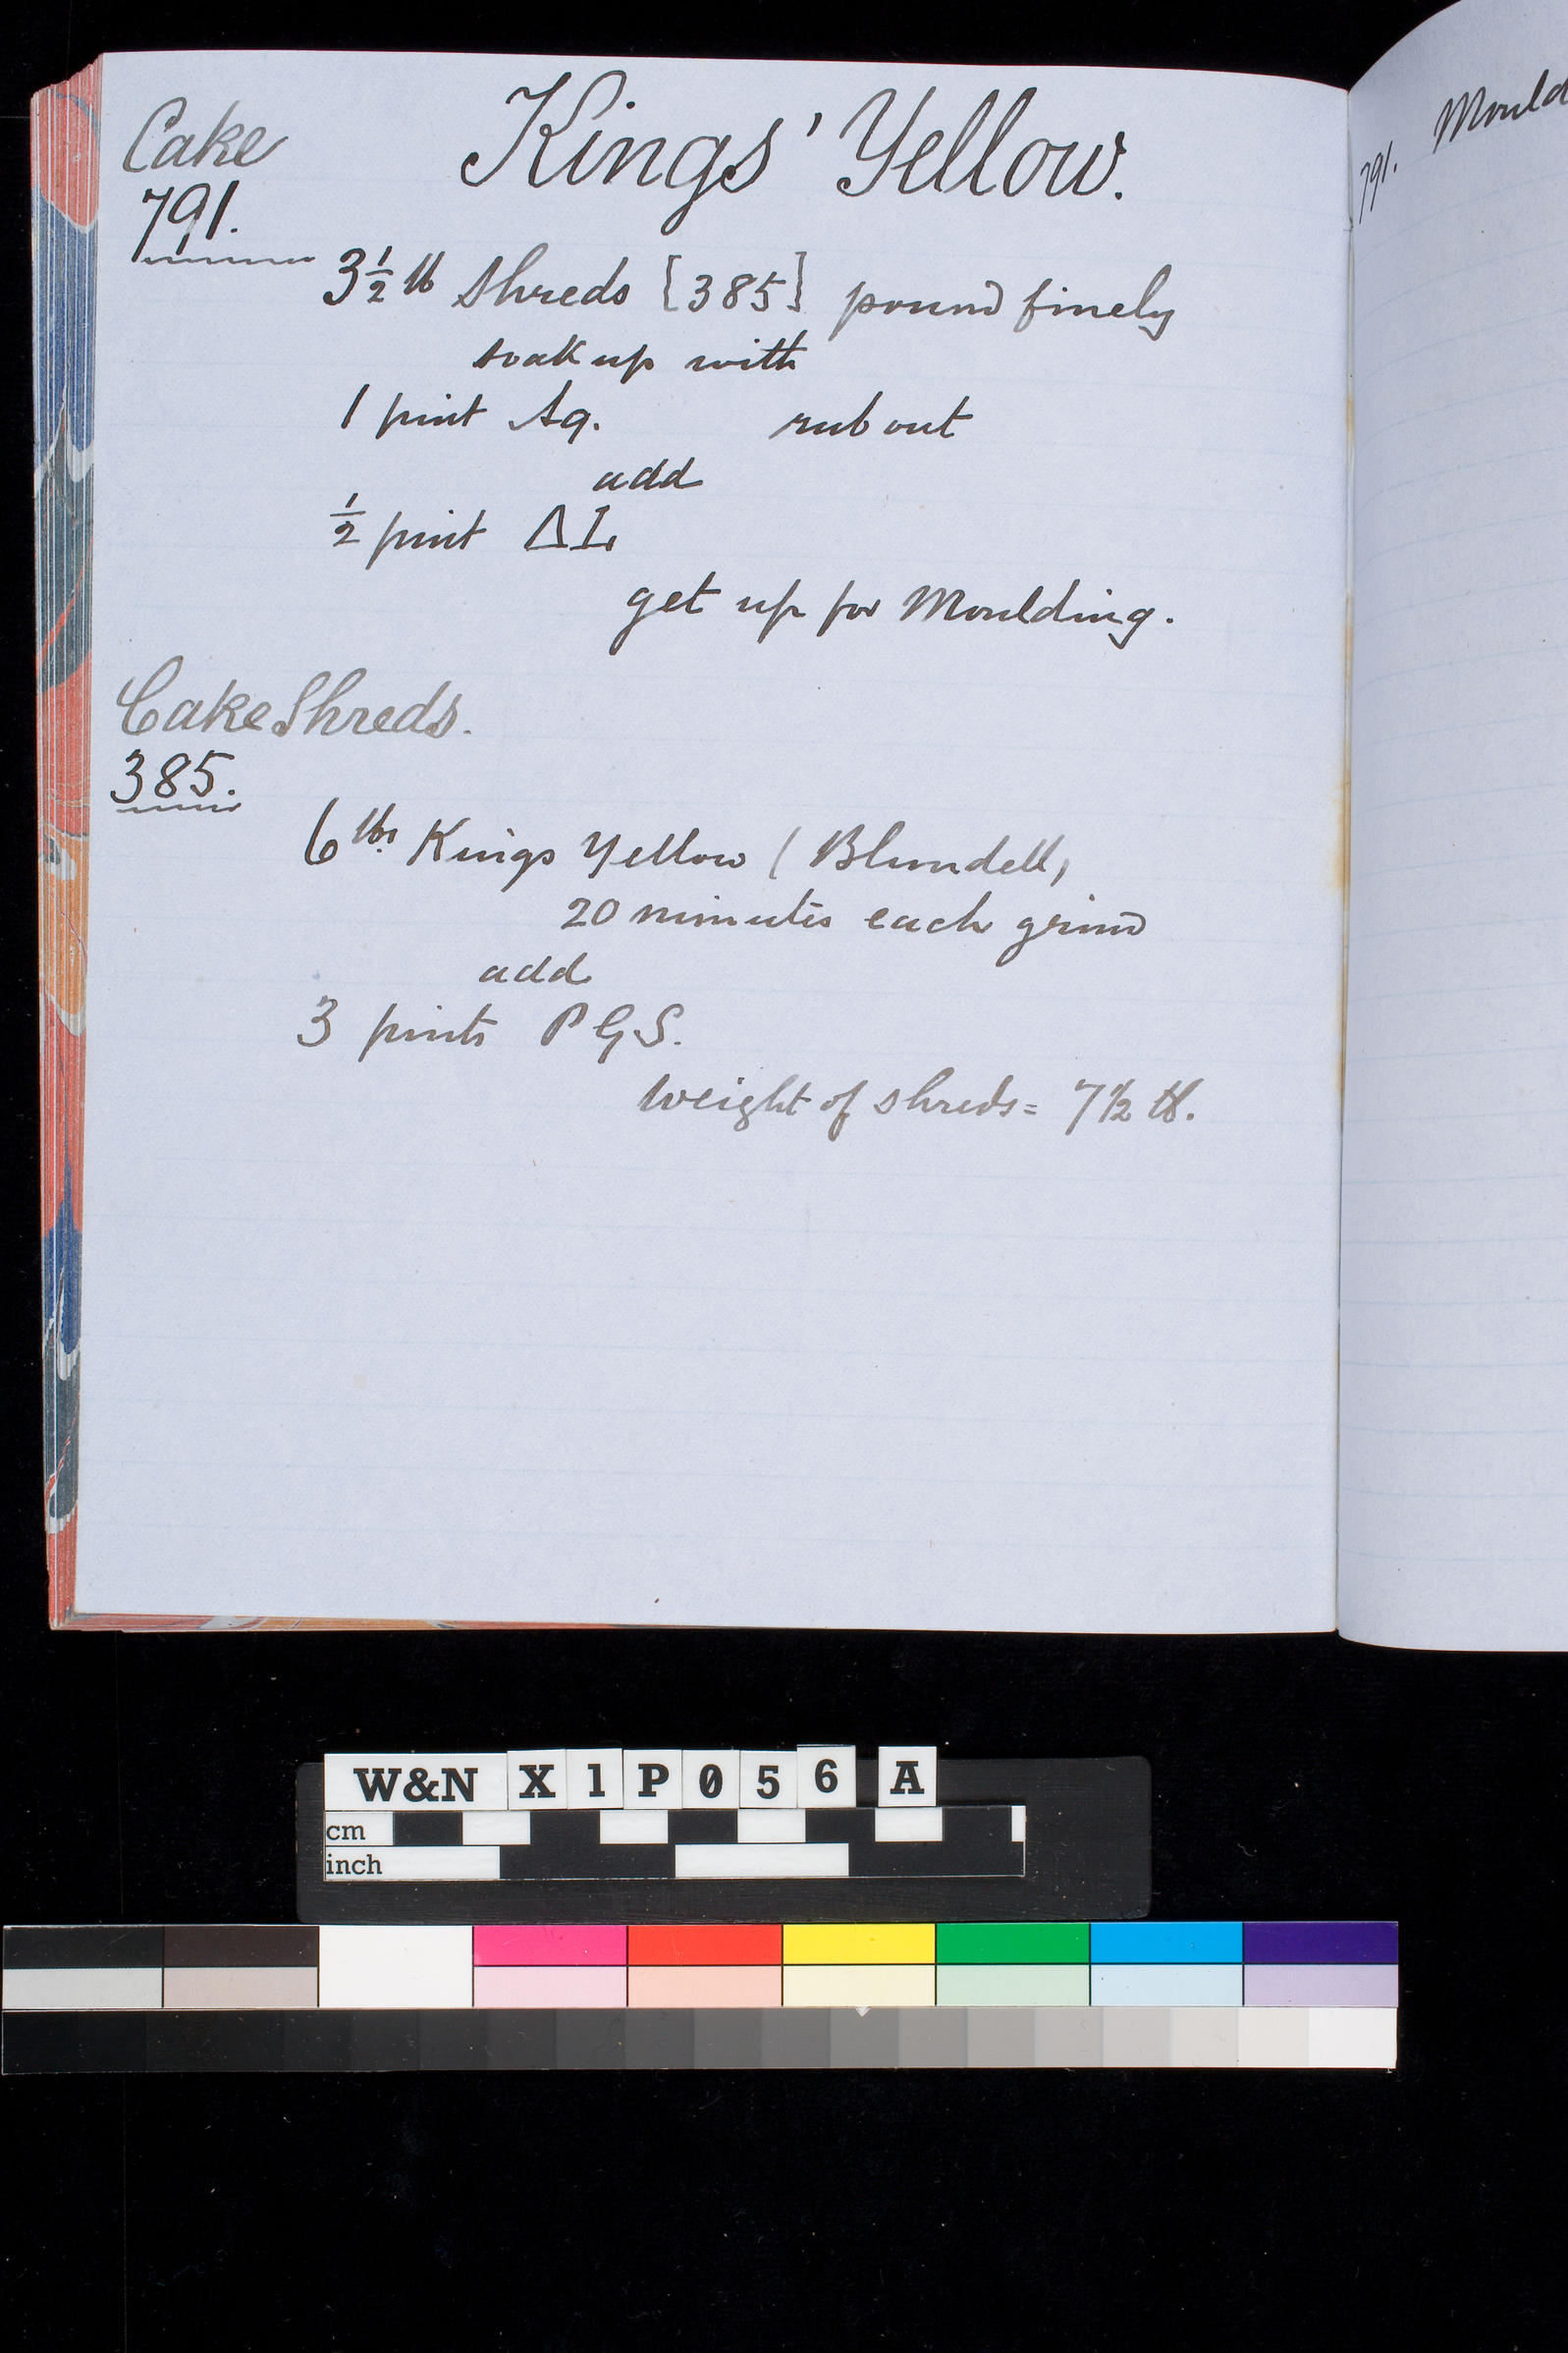 Cake Kings' Yellow.
791.
3½ lb Shreds [385] pound finely
soak up with
1 pint Aq. rub out
add
½ pint ΔL
get up for Moulding.
Cake Shreds.
385.
6 lbs Kings Yellow (Blundell)
20 minutes each grind
add
3 pints PGS.
weight of shreds = 7½ lb.
791. Mould
W&N X1P056 A
cm
inch